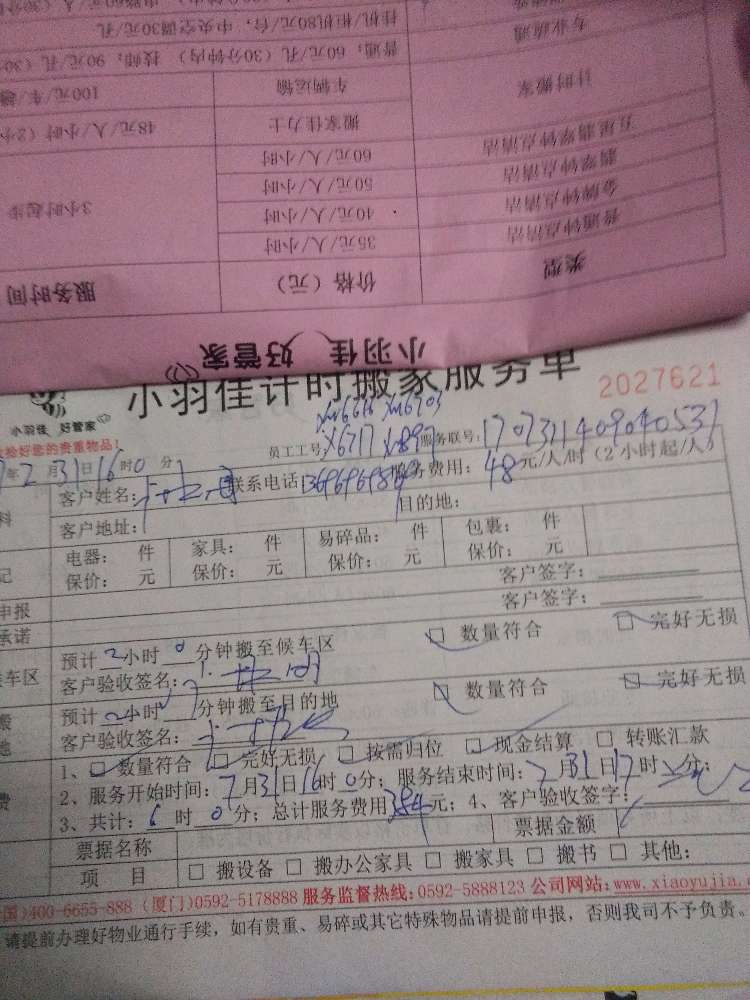 挂机/柜机80元/台,中央空调30元/孔
专业疏通
普通:60元/孔(30分钟内) 技师:90元/孔(30
计时搬家
车辆运输
100元/车/趟
搬家佳力士
48元/人/小时(2小
五星翡翠钟点清洁
60元/人/小时
翡翠钟点清洁
50元/人/小时
3小时起步
金牌钟点清洁
40元/人/小时
普通钟点清洁
35元/人/小时
类型
价格(元)
服务时间
小羽佳 好管家
小羽佳计时搬家服务单
2027621
小羽佳 好管家
检好您的贵重物品!
员工工号:
X6717 X1897
服务联号:170731140904053
年 月31日16时0分
客户姓名:
联系电话
服务费用:48元/人/时(2小时起/人)
客户地址:
目的地:
电器: 件 家具: 件 易碎品: 件 包裹: 件
保价: 元 保价: 元 保价: 元 保价: 元
申报
客户签字:
承诺
客户签字:
车区
预计2小时0分钟搬至候车区
□ 数量符合 □ 完好无损
客户验收签名:
预计2小时 分钟搬至目的地
□ 数量符合 □ 完好无损
客户验收签名:
1、□ 数量符合 □ 完好无损 □ 按需归位 □ 现金结算 □ 转账汇款
2、服务开始时间:7月31日16时0分;服务结束时间:7月31日17时 分;
3、共计:6时0分;总计服务费用384元;4、客户验收签字:
票据名称
票据金额
项 目
□ 搬设备 □ 搬办公家具 □ 搬家具 □ 搬书 □ 其他:
国)400-6655-888 (厦门)0592-5178888 服务监督热线:0592-5888123 公司网站:www.xiaoyujia.c
请提前办理好物业通行手续,如有贵重、易碎或其它特殊物品请提前申报,否则我司不予负责。